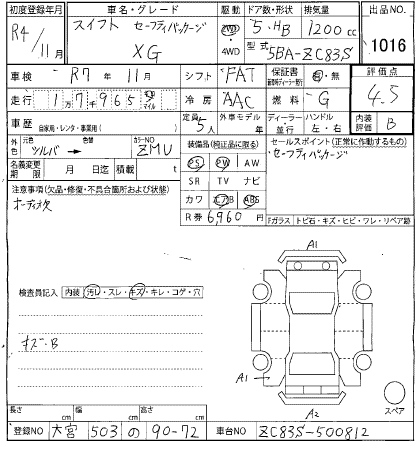 初度登録年月 車名・グレード 駆動 ドア数・形状 排気量 出品NO.
R4/11月 スイフト セーフティパッケージ 2WD 5・HB 1200cc 1016
XG 4WD 型式 5BA-ZC83S
車検 R7年11月 シフト FAT 保証書 有・無 評価点
走行 1万7千965 km マイル 冷房 AAC 燃料 G 4.5
車歴 自家用・レンタ・事業用( ) 定員 5人 外車モデル 年 ディーラー 並行 ハンドル 左・右 内装評価 B
外色 元色 ツルバ → 色替 カラーNO ZMU 装備品(純正品に限る) セールスポイント(正常に作動するもの)
PS PW AW セーフティパッケージ
名義変更期限 月 日迄 積載 t SR TV ナビ
注意事項(欠品・修復・不具合箇所および状態) カワ エアB ABS
オーディオ欠 R券 6,960 円
Fガラス トビ石・キズ・ヒビ・ワレ・リペア跡
A1
検査員記入 内装 汚レ・スレ・キズ・キレ・コゲ・穴
キズ・B
A1
長さ cm 幅 cm 高さ cm A2 スペア
登録NO 大宮 503 の 90-72 車台NO ZC83S-500812